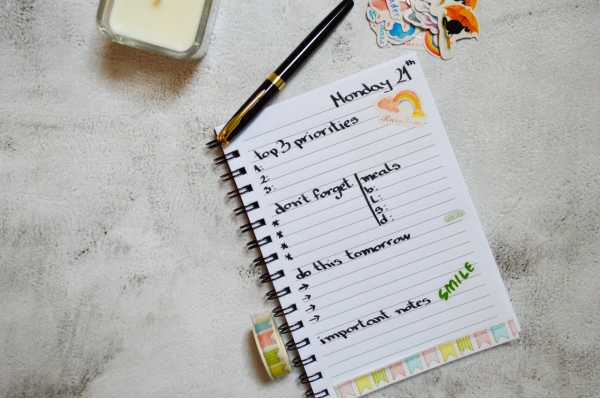 Monday
top 3 priorities
1:
2:
3:
don't forget
*
*
*
*
meals
b:
L:
s:
d:
do this tomorrow
→
→
→
important notes
SMILE